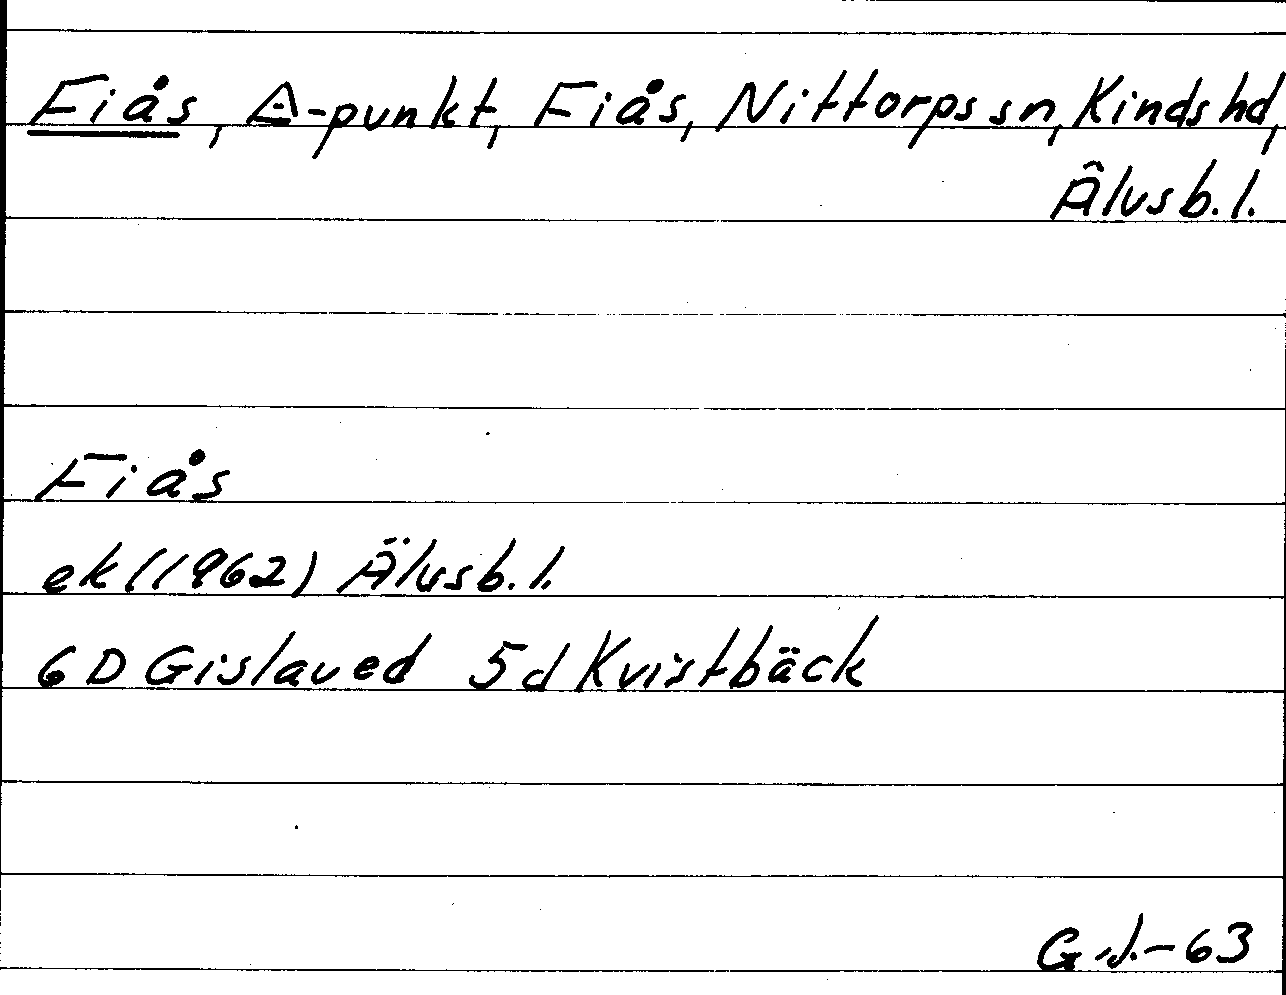 Fiås, A-punkt, Fiås, Nittorps sn, Kinds hd,
Älvsb. l.
Fiås
ek (1962) Älvsb. l.
6D Gislaved 5d Kvistbäck
G.J.-63